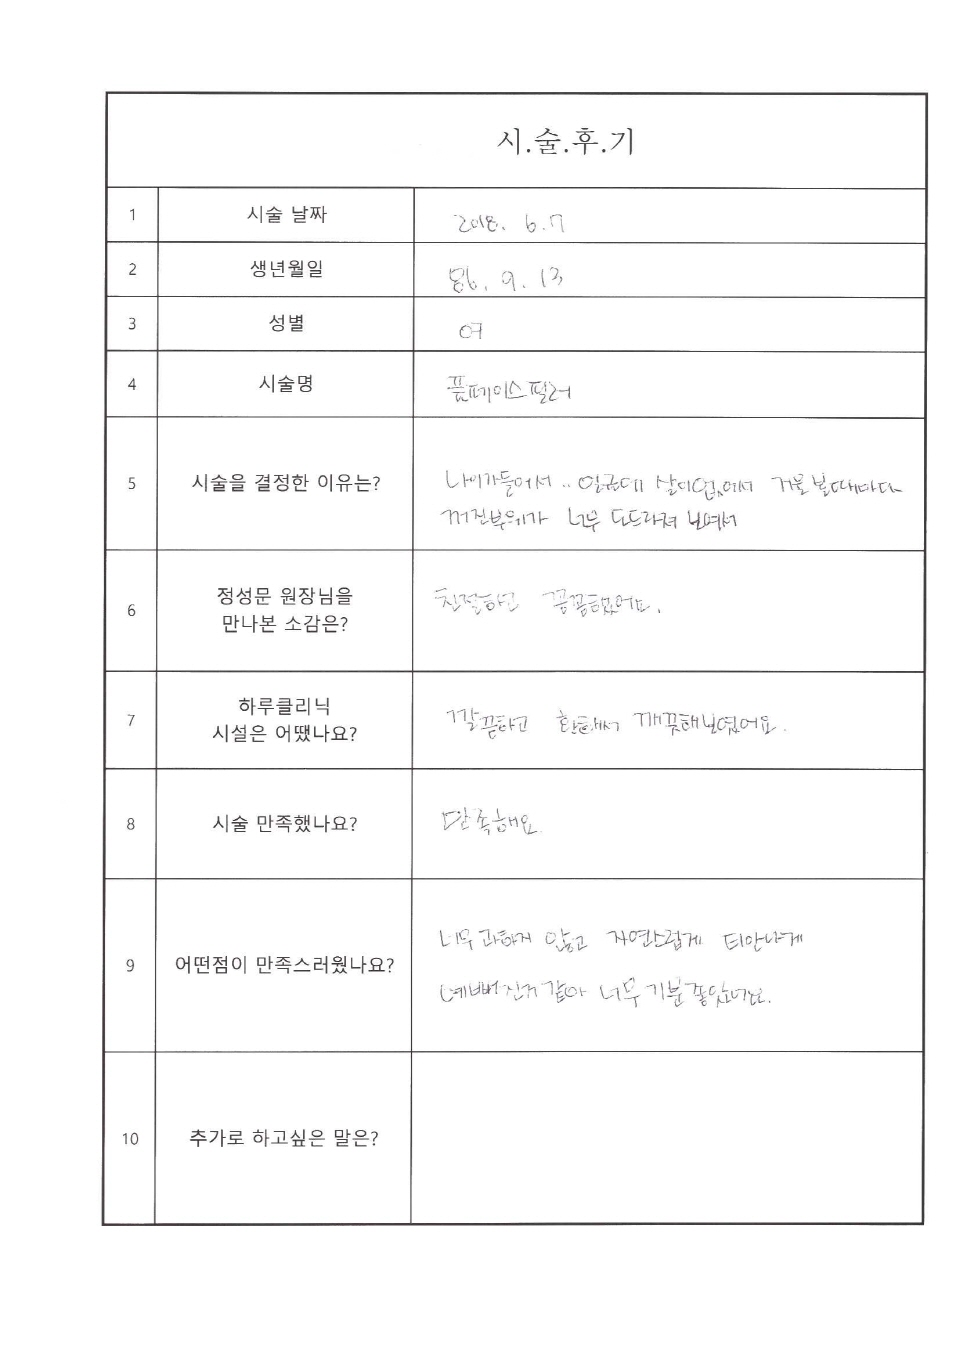 시.술.후.기
1 시술 날짜 2018. 6.7
2 생년월일 86. 9. 13
3 성별 여
4 시술명 풀페이스필러
5 시술을 결정한 이유는? 나이가들어서.. 얼굴에 살이없어서 거울볼때마다
꺼진부위가 너무 도드라져 보여서
6 정성문 원장님을
만나본 소감은? 친절하고 꼼꼼했어요.
7 하루클리닉
시설은 어땠나요? 깔끔하고 환해서 깨끗해보였어요.
8 시술 만족했나요? 만족해요.
9 어떤점이 만족스러웠나요? 너무 과하지 않고 자연스럽게 티안나게
예뻐진거 같아 너무 기분좋았어요.
10 추가로 하고싶은 말은?